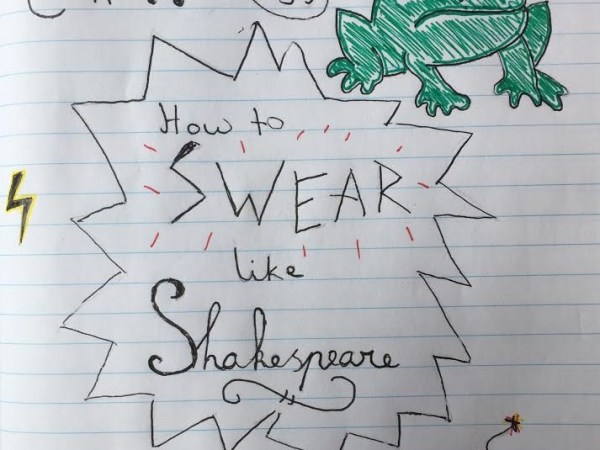 How to
SWEAR
like
Shakespeare